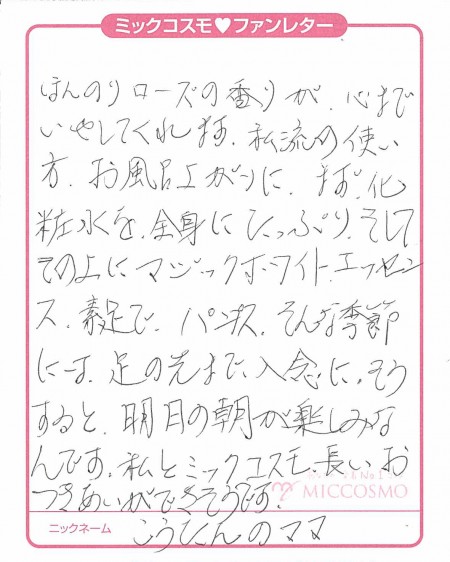 ミックコスモ♥ファンレター
ほんのりローズの香りが、心まで
いやしてくれます。私流の使い
方。お風呂上がりに、まず、化
粧水を、全身にたっぷり、そして
その上にマジックホワイトエッセン
ス。素足で、パンプス、そんな季節
には、足の先まで、入念に。そう
すると、明日の朝が楽しみな
んです。私とミックコスモ、長い、お
つきあいができそうです。
MICCOSMO
ニックネーム
こうたんのママ